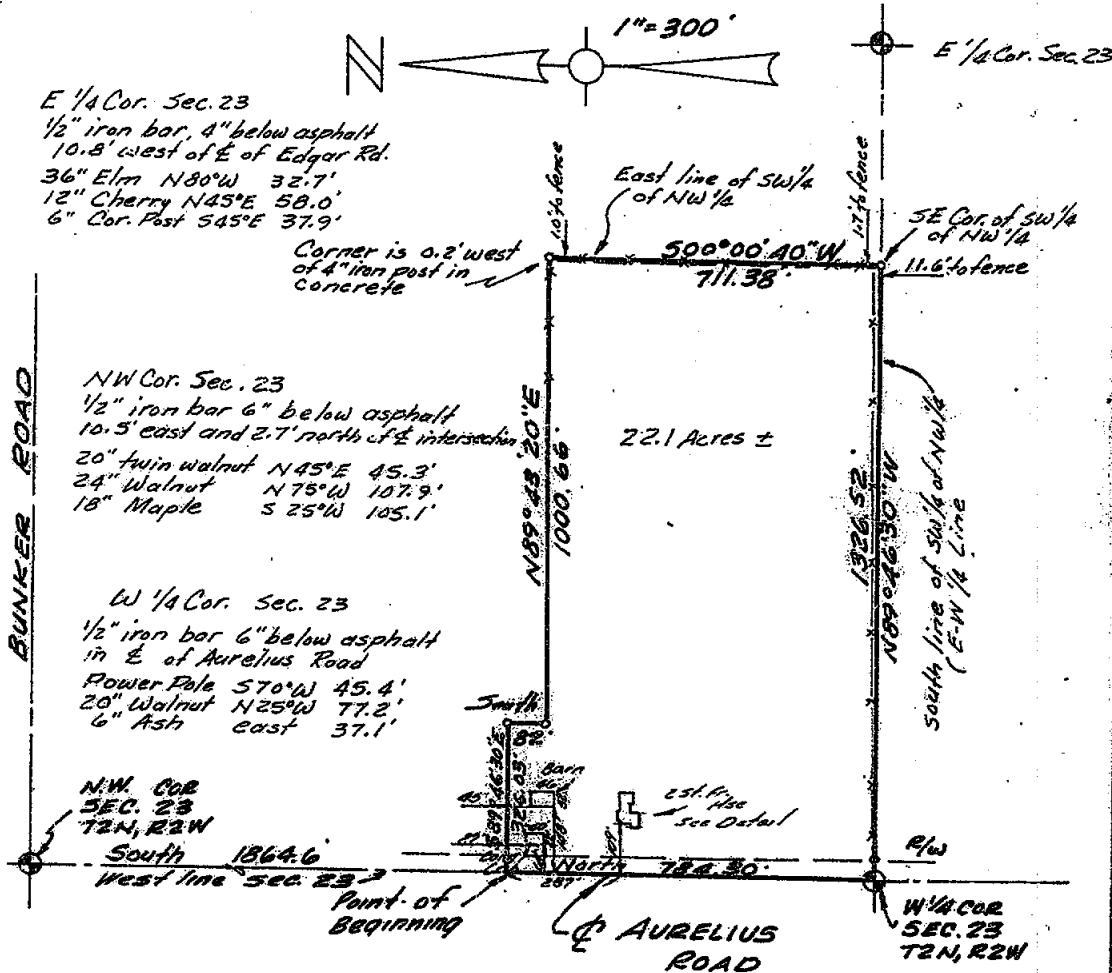 1"=300'
N
E 1/4 Cor. Sec. 23
E 1/4 Cor. Sec. 23
1/2" iron bar, 4" below asphalt
10.8' west of ℄ of Edgar Rd.
36" Elm N80°W 32.7'
12" Cherry N45°E 58.0'
6" Cor. Post S45°E 37.9'
1.0' to fence
East line of SW 1/4
of NW 1/4
1.7' to fence
SE Cor. of SW 1/4
of NW 1/4
11.6' to fence
Corner is 0.2' west
of 4" iron post in
concrete
S00°00'40"W
711.38'
BUNKER ROAD
NW Cor. Sec. 23
1/2" iron bar 6" below asphalt
10.5' east and 2.7' north of ℄ intersection
20" twin walnut N45°E 45.3'
24" Walnut N75°W 107.9'
18" Maple S 25°W 105.1'
N89°43'20"E
1000.66'
22.1 Acres ±
1326.52'
N89°46'30"W
South line of SW 1/4 of NW 1/4
(E-W 1/4 Line
W 1/4 Cor. Sec. 23
1/2" iron bar 6" below asphalt
in ℄ of Aurelius Road
Power Pole S70°W 45.4'
20" Walnut N25°W 77.2'
6" Ash east 37.1'
South
82'
S89°46'30"E
326.03'
Barn
2 St. Fr.
Hse
See Detail
N.W. COR
SEC. 23
T2N, R2W
South 1864.6'
West line Sec. 23
North 784.30'
287'
R/W
Point of
Beginning
℄ AURELIUS
ROAD
W 1/4 COR
SEC. 23
T2N, R2W